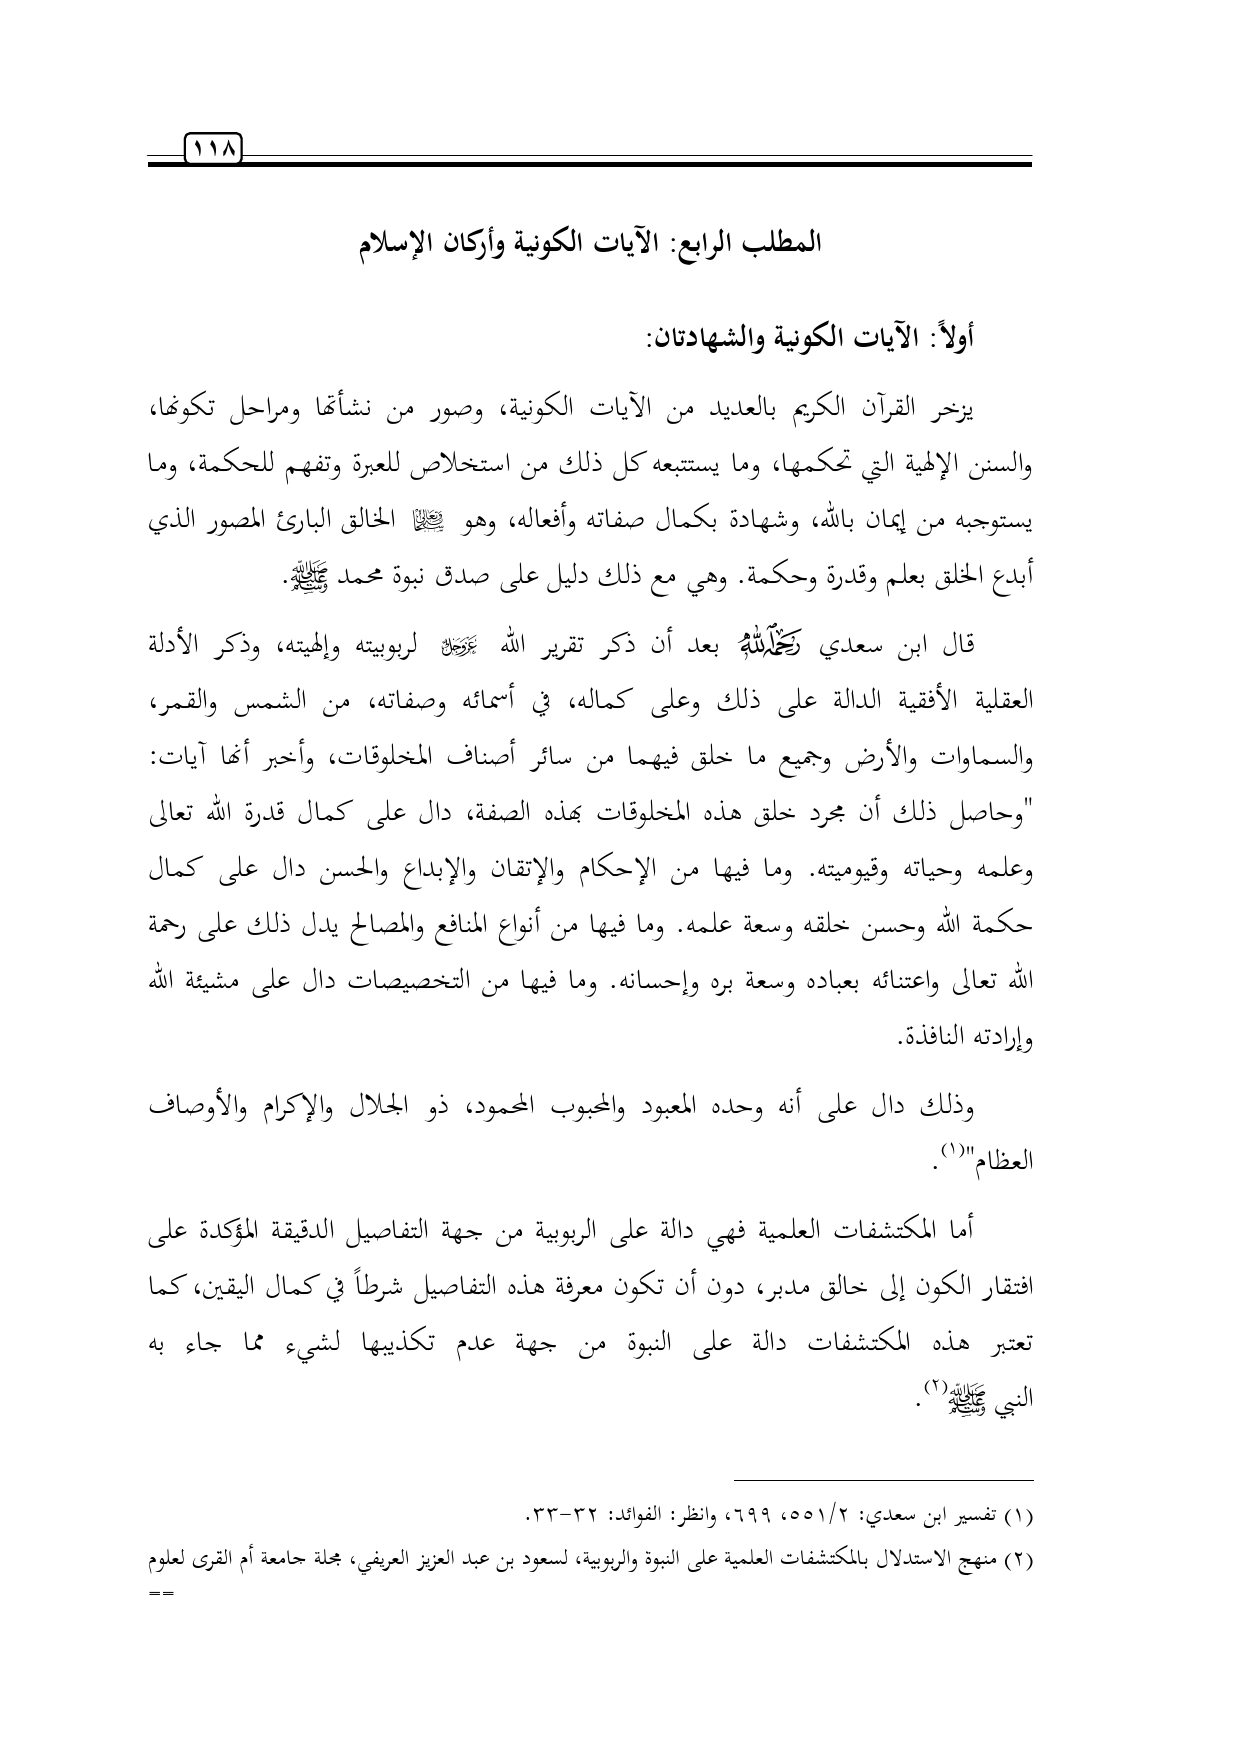 ١١٨
المطلب الرابع: الآيات الكونية وأركان الإسلام
أولاً: الآيات الكونية والشهادتان:
يزخر القرآن الكريم بالعديد من الآيات الكونية، وصور من نشأتها ومراحل تكونها،
والسنن الإلهية التي تحكمها، وما يستتبعه كل ذلك من استخلاص للعبرة وتفهم للحكمة، وما
يستوجبه من إيمان بالله، وشهادة بكمال صفاته وأفعاله، وهو الخالق البارئ المصور الذي
أبدع الخلق بعلم وقدرة وحكمة. وهي مع ذلك دليل على صدق نبوة محمد ﷺ.
قال ابن سعدي رحمه الله بعد أن ذكر تقرير الله عز وجل لربوبيته وإلهيته، وذكر الأدلة
العقلية الأفقية الدالة على ذلك وعلى كماله، في أسمائه وصفاته، من الشمس والقمر،
والسماوات والأرض وجميع ما خلق فيهما من سائر أصناف المخلوقات، وأخبر أنها آيات:
"وحاصل ذلك أن مجرد خلق هذه المخلوقات بهذه الصفة، دال على كمال قدرة الله تعالى
وعلمه وحياته وقيوميته. وما فيها من الإحكام والإتقان والإبداع والحسن دال على كمال
حكمة الله وحسن خلقه وسعة علمه. وما فيها من أنواع المنافع والمصالح يدل ذلك على رحمة
الله تعالى واعتنائه بعباده وسعة بره وإحسانه. وما فيها من التخصيصات دال على مشيئة الله
وإرادته النافذة.
وذلك دال على أنه وحده المعبود والمحبوب المحمود، ذو الجلال والإكرام والأوصاف
العظام"(١).
أما المكتشفات العلمية فهي دالة على الربوبية من جهة التفاصيل الدقيقة المؤكدة على
افتقار الكون إلى خالق مدبر، دون أن تكون معرفة هذه التفاصيل شرطاً في كمال اليقين، كما
تعتبر هذه المكتشفات دالة على النبوة من جهة عدم تكذيبها لشيء مما جاء به
النبي ﷺ(٢).
(١) تفسير ابن سعدي: ٥٥١/٢، ٦٩٩، وانظر: الفوائد: ٣٢-٣٣.
(٢) منهج الاستدلال بالمكتشفات العلمية على النبوة والربوبية، لسعود بن عبد العزيز العريفي، مجلة جامعة أم القرى لعلوم
==